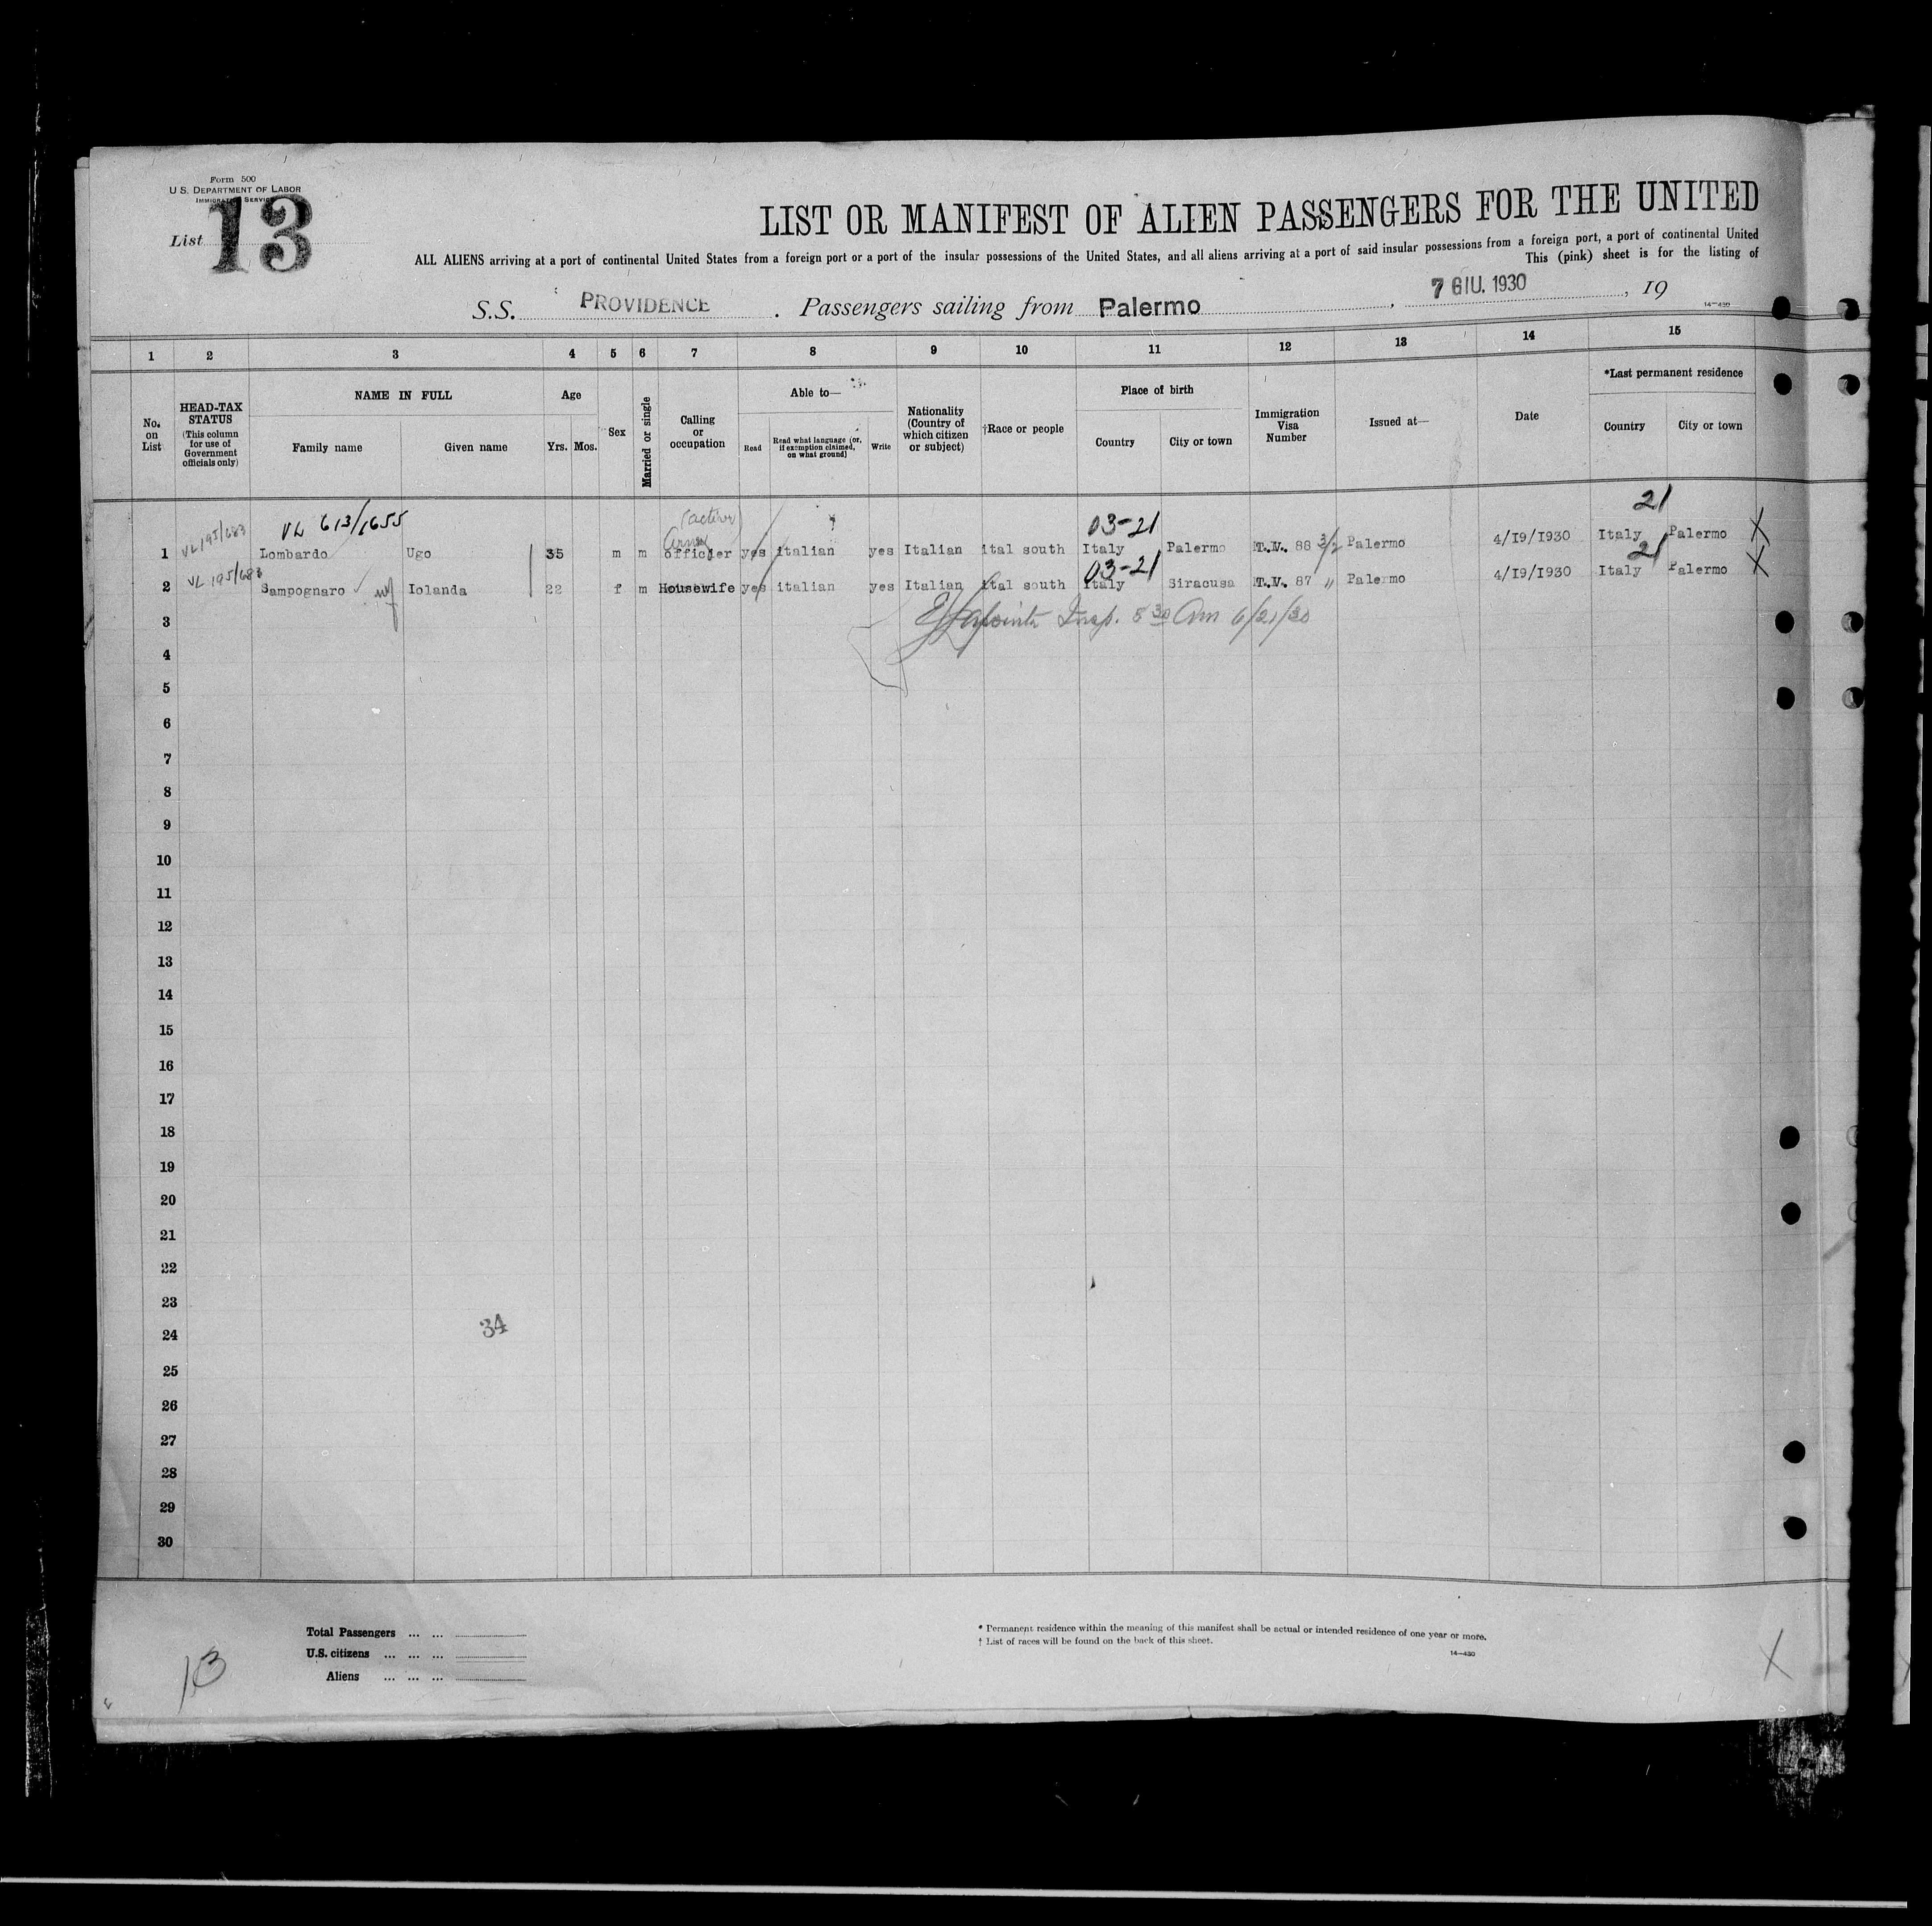 Form 500
U. S. DEPARTMENT OF LABOR
IMMIGRATION SERVICE
List 13
LIST OR MANIFEST OF ALIEN PASSENGERS FOR THE UNITED
ALL ALIENS arriving at a port of continental United States from a foreign port or a port of the insular possessions of the United States, and all aliens arriving at a port of said insular possessions from a foreign port, a port of continental United
This (pink) sheet is for the listing of
S.S. PROVIDENCE . Passengers sailing from Palermo , 7 GIU. 1930 , 19
14—430
1 2 3 4 5 6 7 8 9 10 11 12 13 14 15
No. on List
HEAD-TAX STATUS (This column for use of Government officials only)
NAME IN FULL
Family name Given name
Age
Yrs. Mos.
Sex
Married or single
Calling or occupation
Able to—
Read
Read what language (or, if exemption claimed, on what ground)
Write
Nationality (Country of which citizen or subject)
†Race or people
Place of birth
Country City or town
Immigration Visa Number
Issued at—
Date
*Last permanent residence
Country City or town
VL 613/1655 (active) 03-21 21
1 VL 195/683 Lombardo Ugo 35 m m Army officier yes italian yes Italian ital south Italy Palermo T.V. 88 3/2 Palermo 4/19/1930 Italy Palermo X
03-21 21
2 VL 195/683 Sampognaro wf Iolanda 22 f m Housewife yes italian yes Italian ital south Italy Siracusa T.V. 87 " Palermo 4/19/1930 Italy Palermo X
3 Insp. 8 30 Am 6/21/30
4
5
6
7
8
9
10
11
12
13
14
15
16
17
18
19
20
21
22
23
24 34
25
26
27
28
29
30
Total Passengers ... ...
U.S. citizens ... ... ...
Aliens ... ... ...
* Permanent residence within the meaning of this manifest shall be actual or intended residence of one year or more.
† List of races will be found on the back of this sheet.
14—430
13
X